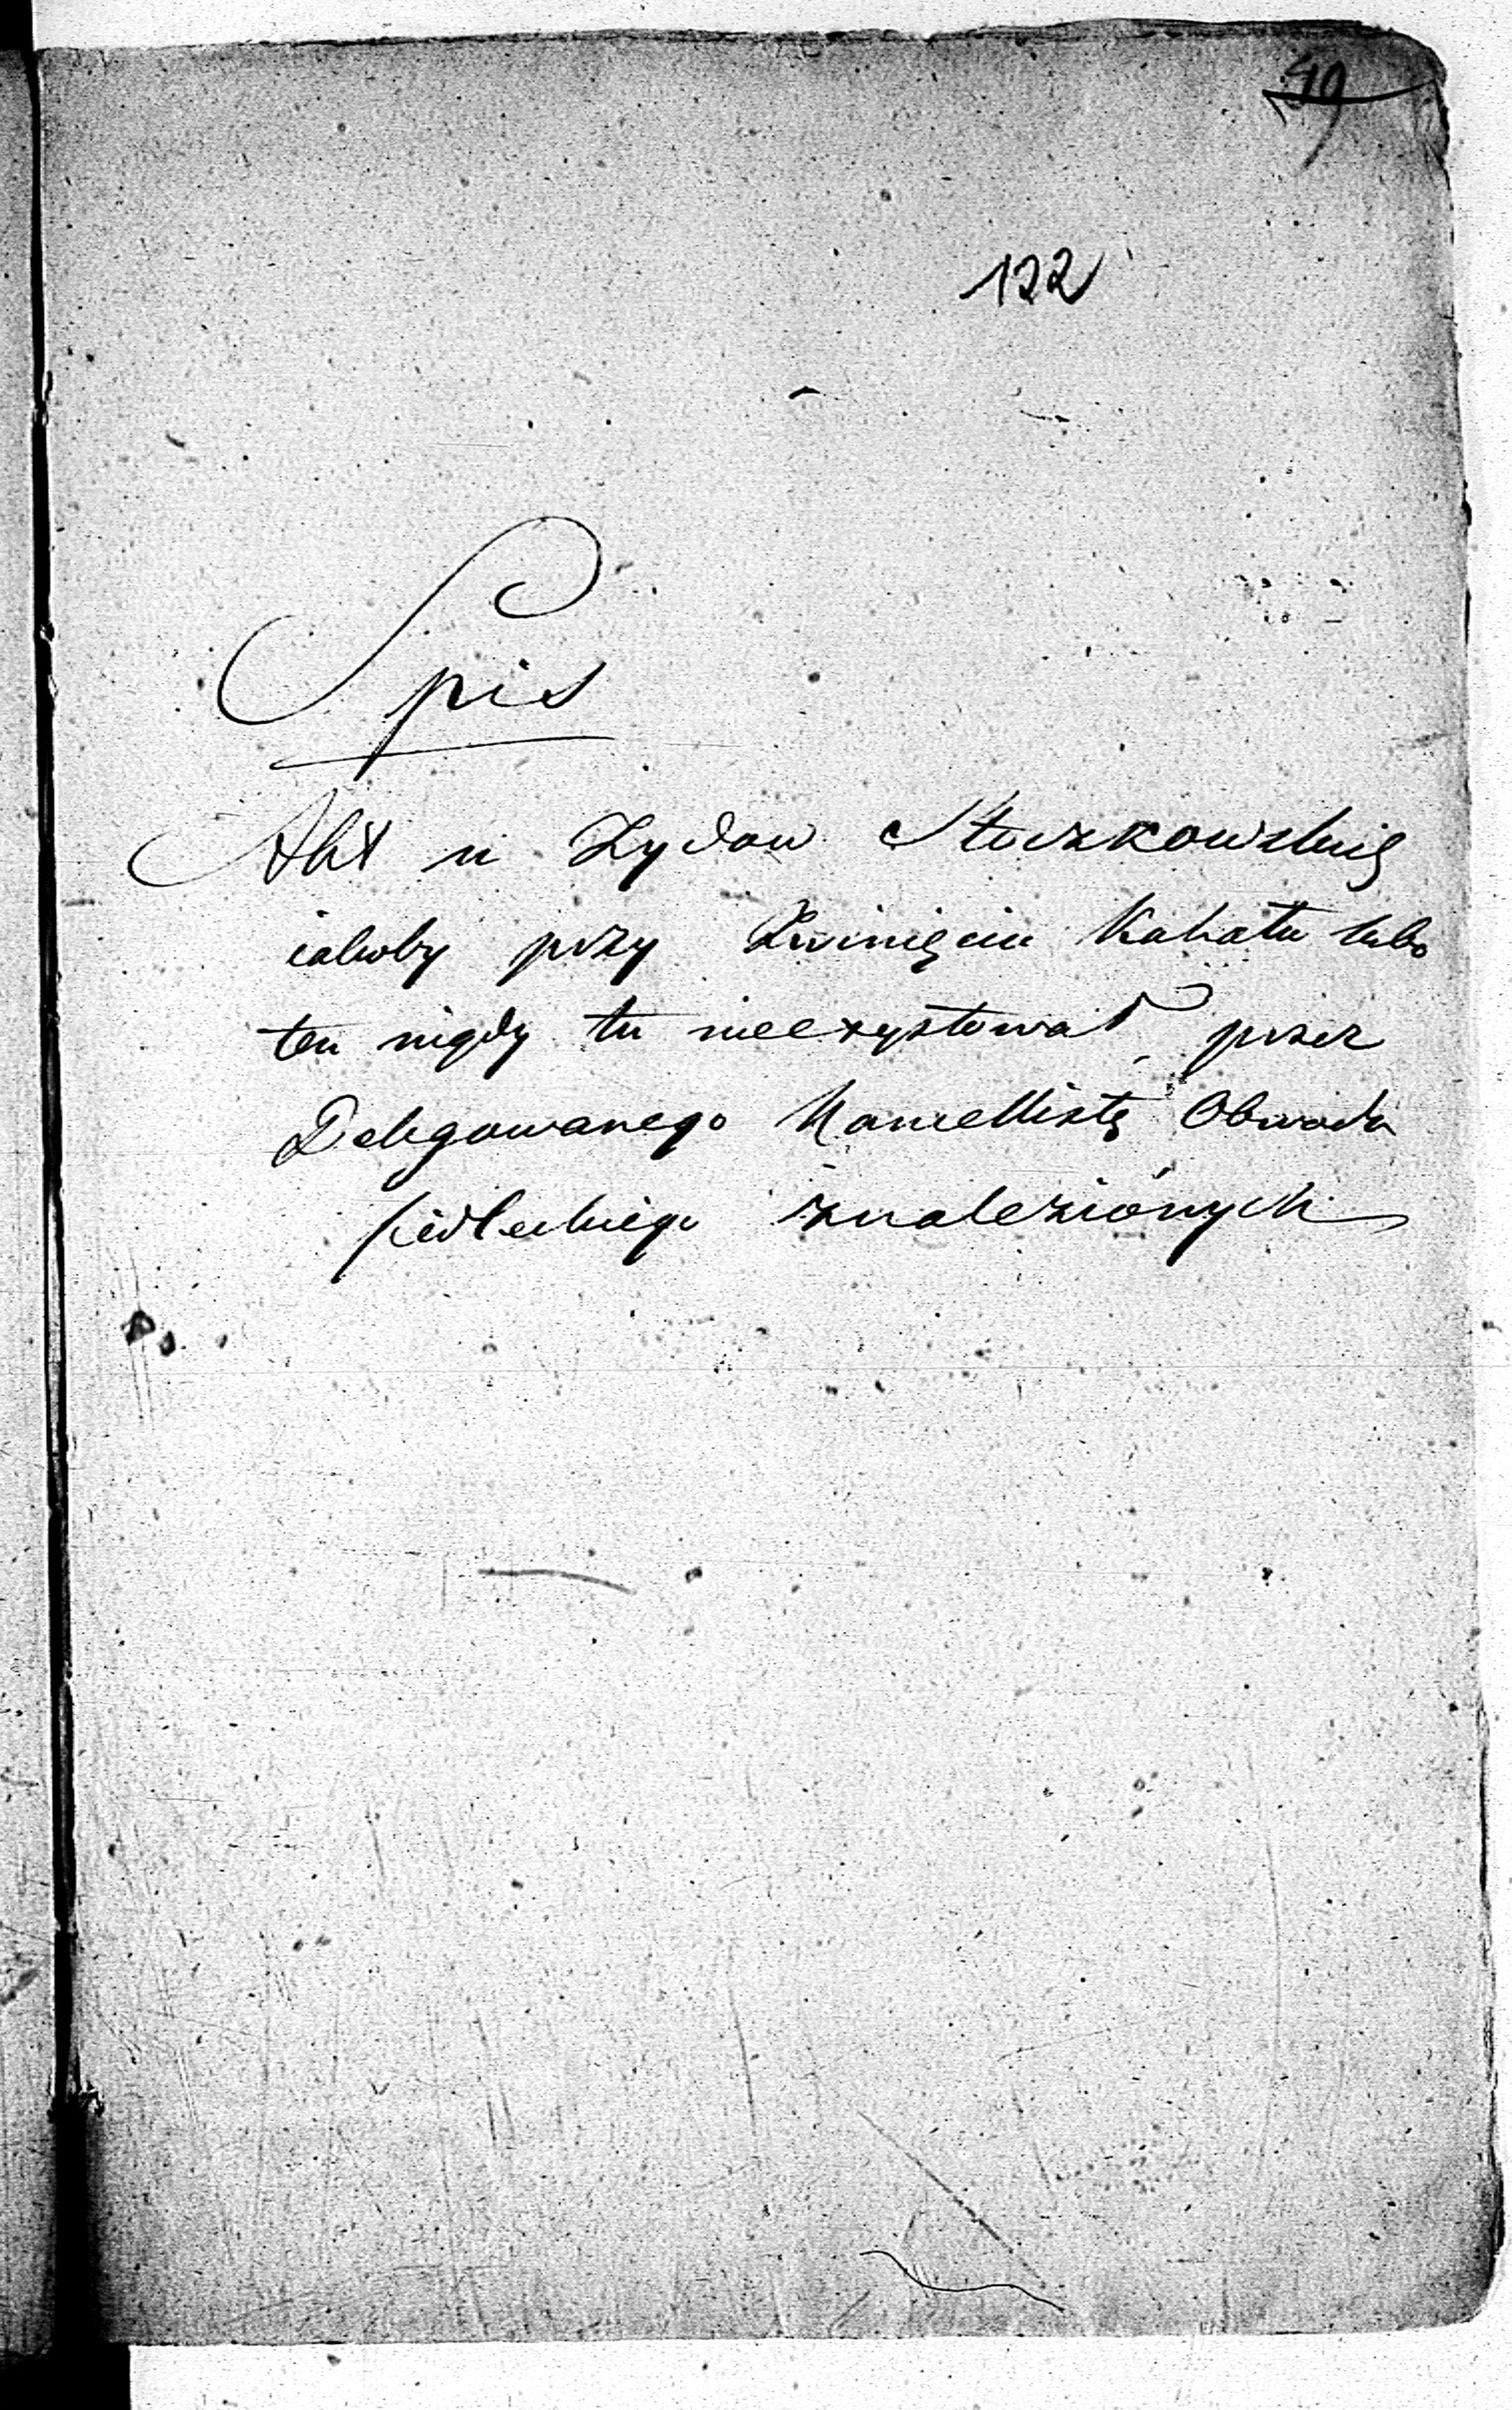 49
122
Spis
Akt u Zydow Stoczkowskich
iakoby przy Zwinięciu Kahału lubo
ten nigdy tu nieexystował przez
Delegowanego Kancellistę Obwodu
siedleckiego znalezionych